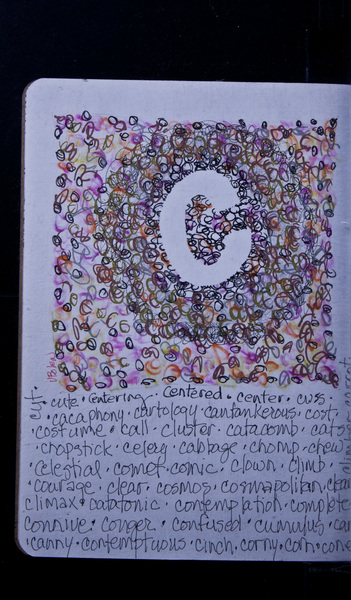 C
cute · centering · centered · center · cuss
cut · cacaphony · cartology · cantankerous · cost,
costume · call · cluster · catacomb · cats
chopstick · celery · cabbage · chomp · chew
celestial · comet · comic · clown · climb ·
courage · clear · cosmos · cosmopolitan · clean
climax · catatonic · contemplation · complete
connive · conger · confused · cumulus · car
canny · contemptuous · cinch · corny · corn · cone